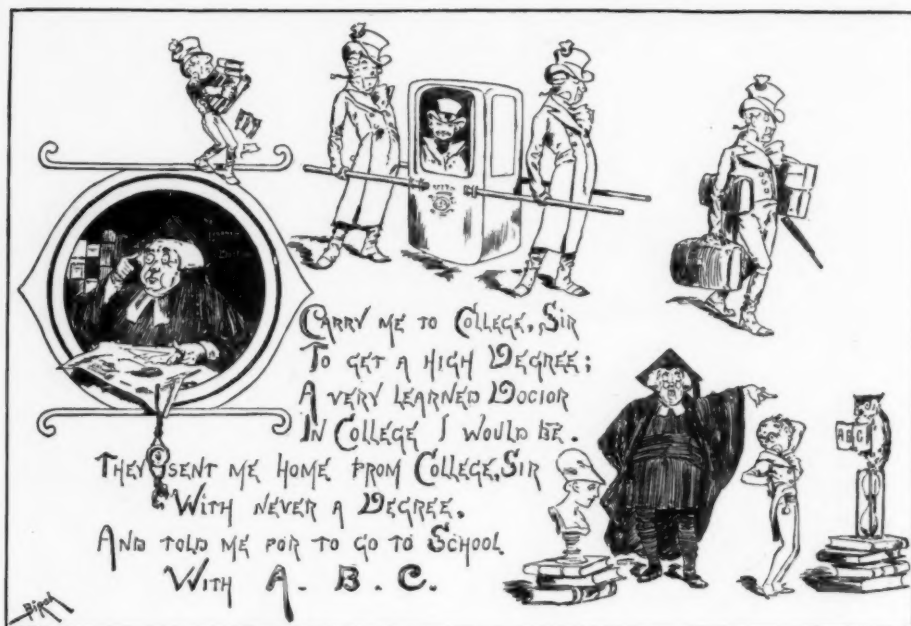 CARRY ME TO COLLEGE, SIR
TO GET A HIGH DEGREE;
A VERY LEARNED DOCTOR
IN COLLEGE I WOULD BE.
THEY SENT ME HOME FROM COLLEGE, SIR
WITH NEVER A DEGREE,
AND TOLD ME FOR TO GO TO SCHOOL
WITH A. B. C.
ABC
Birch